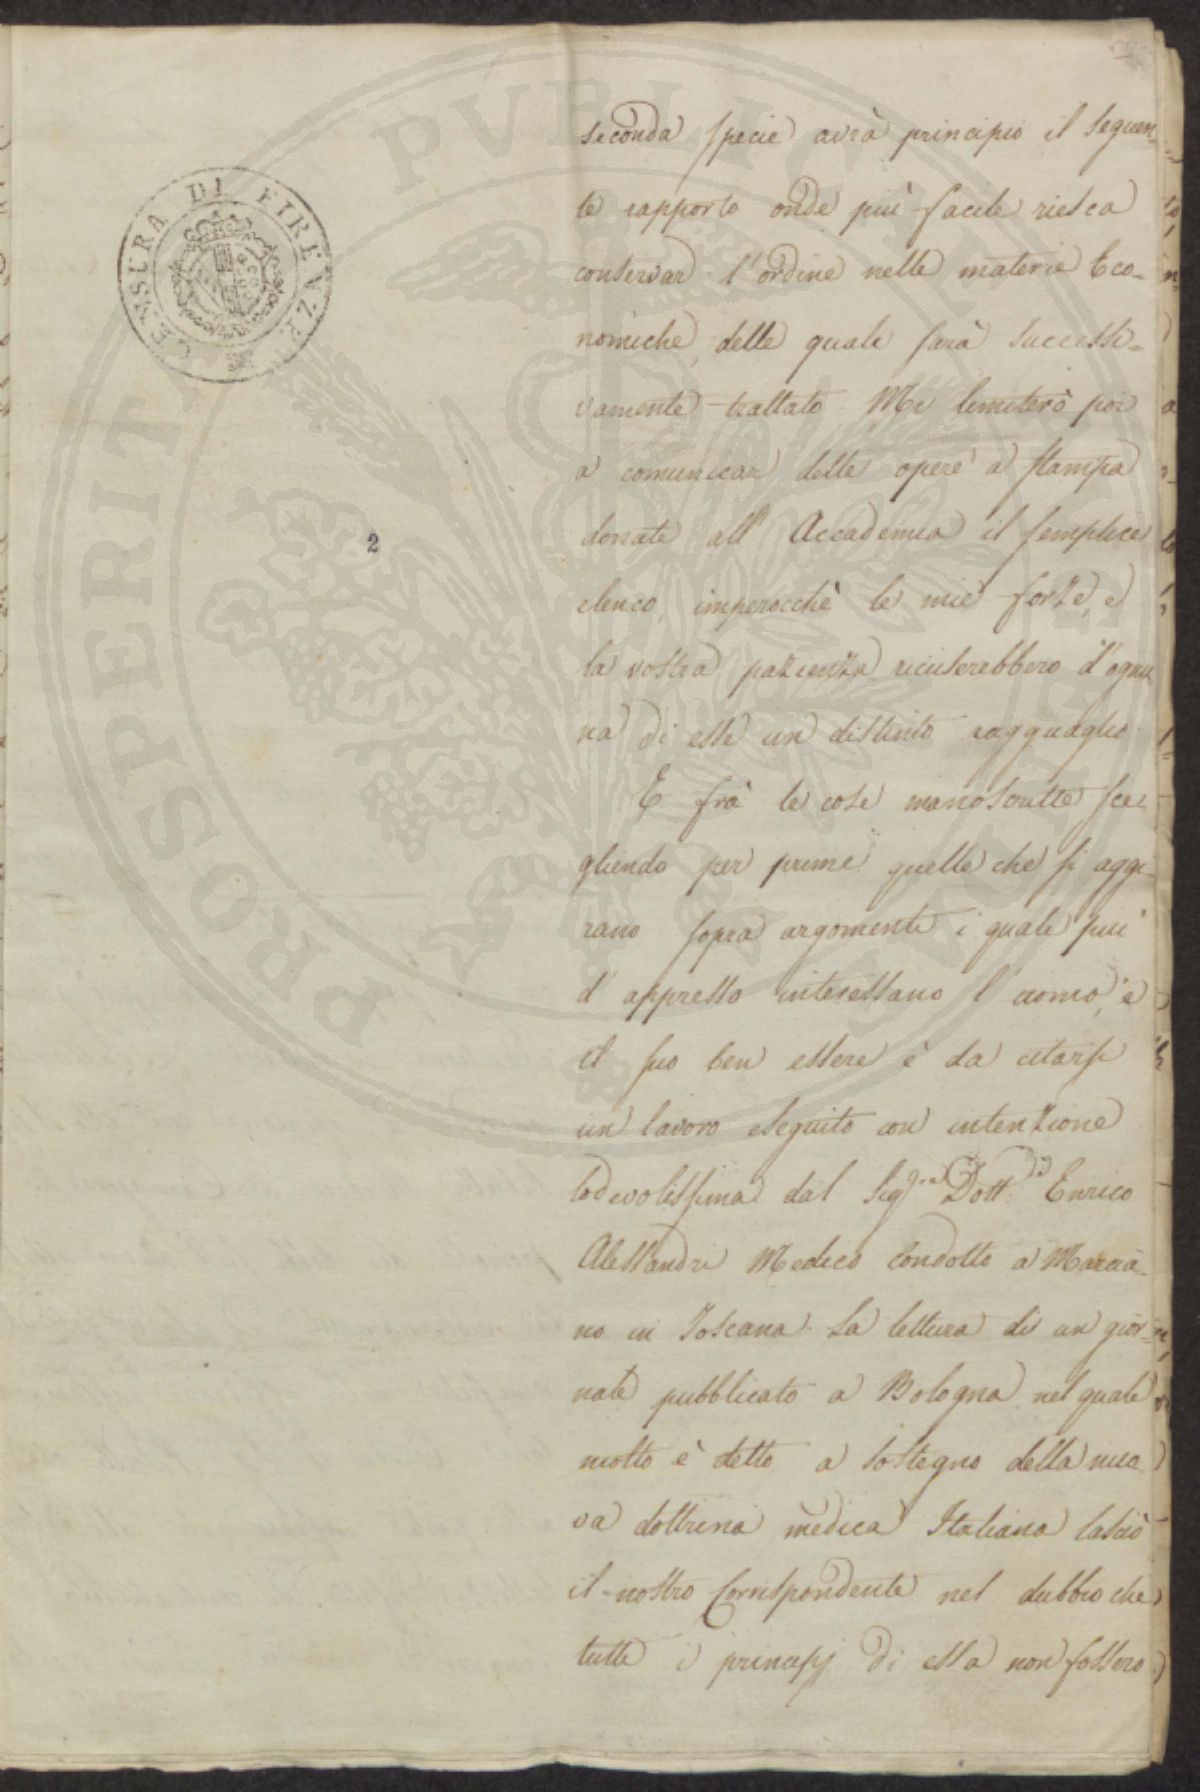 CENSURA DI FIRENZE
PROSPERITATI PUBLICAE AUGENDAE
2
seconda specie avrà principio il seguen-
te rapporto onde più facile riesca
conservar l'ordine nelle materie Eco-
nomiche, delle quali sarà successi-
vamente trattato. Mi limiterò poi
a comunicar delle opere a stampa
donate all' Accademia il semplice
elenco, imperocchè le mie forze, e
la vostra pazienza ricuserebbero d'ognu-
na di esse un distinto ragguaglio.
E frà le cose manoscritte sce-
gliendo per prime quelle che si aggi-
rano sopra argomenti i quali più
d' appresso interessano l' uomo, e
il suo ben essere è da citarsi
un lavoro eseguito con intenzione
lodevolissima dal Sigre Dott: Enrico
Alessandri Medico Condotto a Marcia-
no in Toscana. La lettura di un gior-
nale pubblicato a Bologna nel quale
molto è detto a sostegno della nuo-
va dottrina medica Italiana lasciò
il nostro Corrispondente nel dubbio che
tutti i principj di essa non fossero